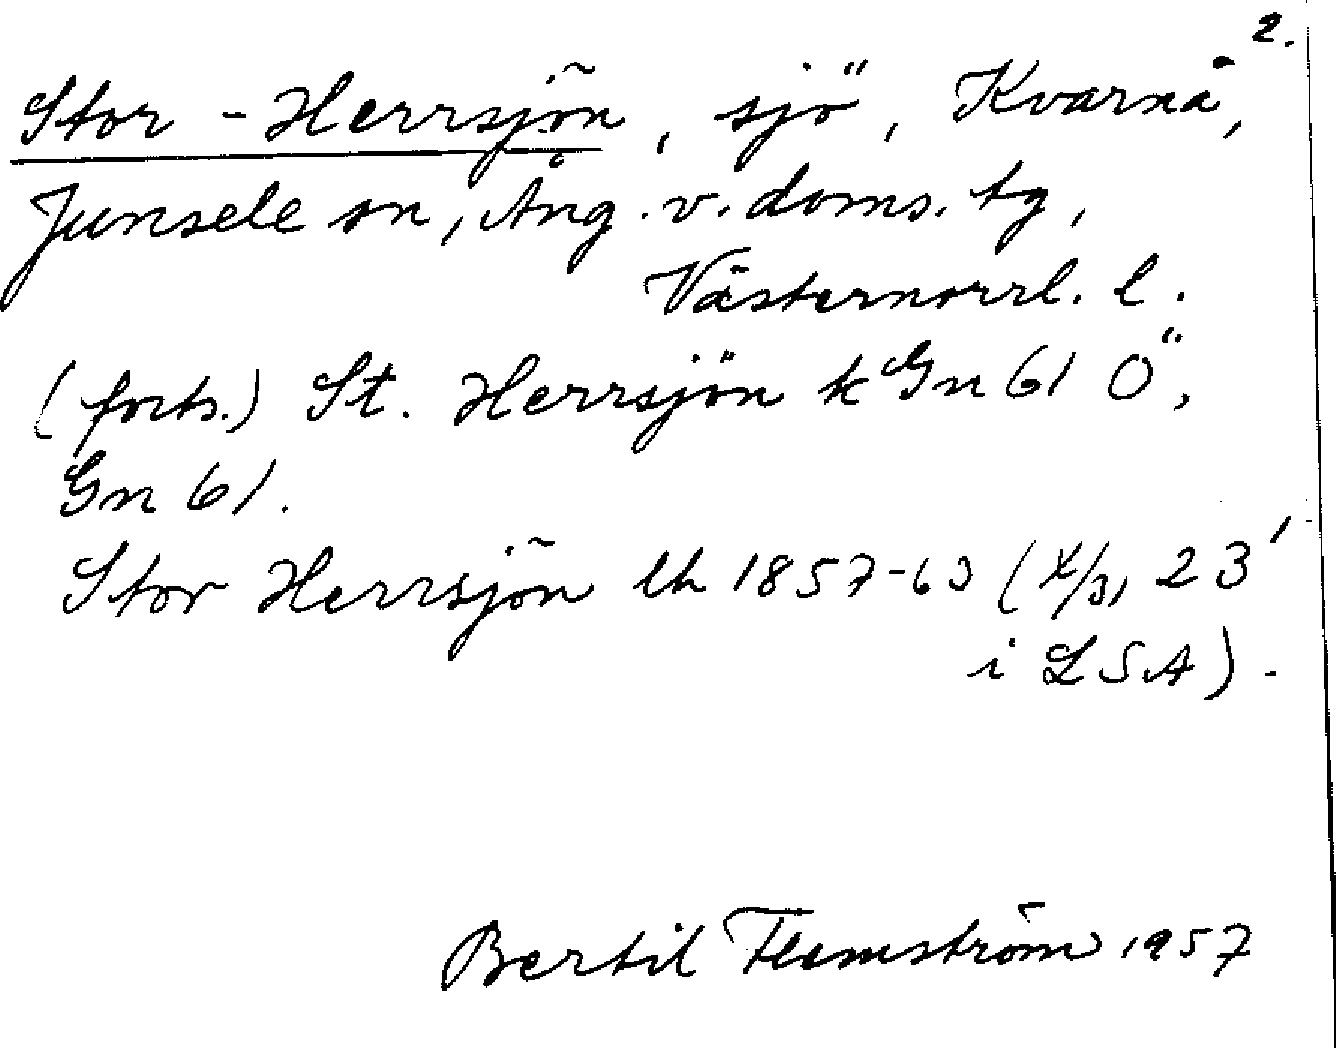 2.
Stor-Herrsjön, sjö, Kvarnå,
Junsele sn, Ång. v. doms. tg,
Västernorrl. l.
(forts.) St. Herrsjön k Gn 61 Ö,
Gn 61.
Stor Herrsjön lh 1857-63 ( 23'
i LSA).
Bertil Flemström 1957